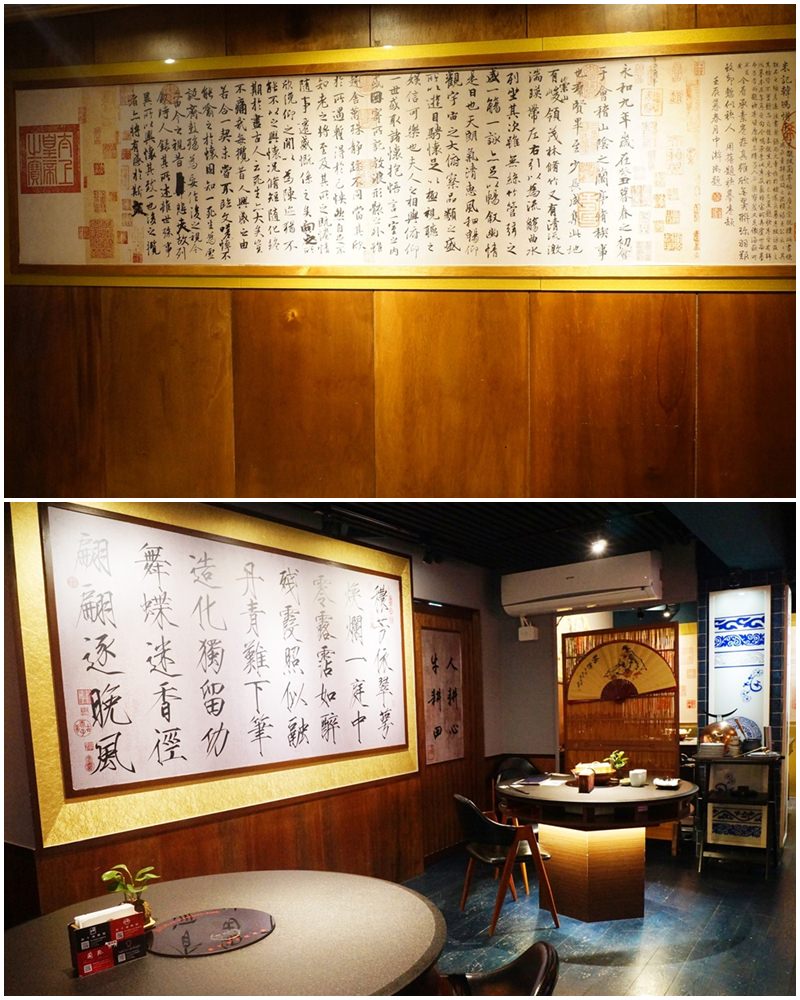 永和九年歲在癸丑暮春之初會
于會稽山陰之蘭亭脩稧事
也羣賢畢至少長咸集此地
有崇山峻領茂林脩竹又有清流激
湍暎帶左右引以為流觴曲水
列坐其次雖無絲竹管弦之
盛一觴一詠亦足以暢敘幽情
是日也天朗氣清惠風和暢仰
觀宇宙之大俯察品類之盛
所以遊目騁懷足以極視聽之
娛信可樂也夫人之相與俯仰
一世或取諸懷抱悟言一室之內
或因寄所託放浪形骸之外雖
趣舍萬殊靜躁不同當其欣
於所遇暫得於己怏然自足不
知老之將至及其所之既惓情
隨事遷感慨係之矣向之所
欣俛仰之閒以為陳迹猶不
能不以之興懷況脩短隨化終
期於盡古人云死生亦大矣豈
不痛哉每攬昔人興感之由
若合一契未嘗不臨文嗟悼不
能喻之於懷固知一死生為虛
誕齊彭殤為妄作後之視今
亦由今之視昔悲夫故列
敘時人錄其所述雖世殊事
異所以興懷其致一也後之攬
者亦將有感於斯文
太上皇帝之寶
穠芳依翠萼
煥爛一庭中
零露霑如醉
殘霞照似融
丹青難下筆
造化獨留功
舞蝶迷香徑
翩翩逐晚風
人耕心
牛耕田